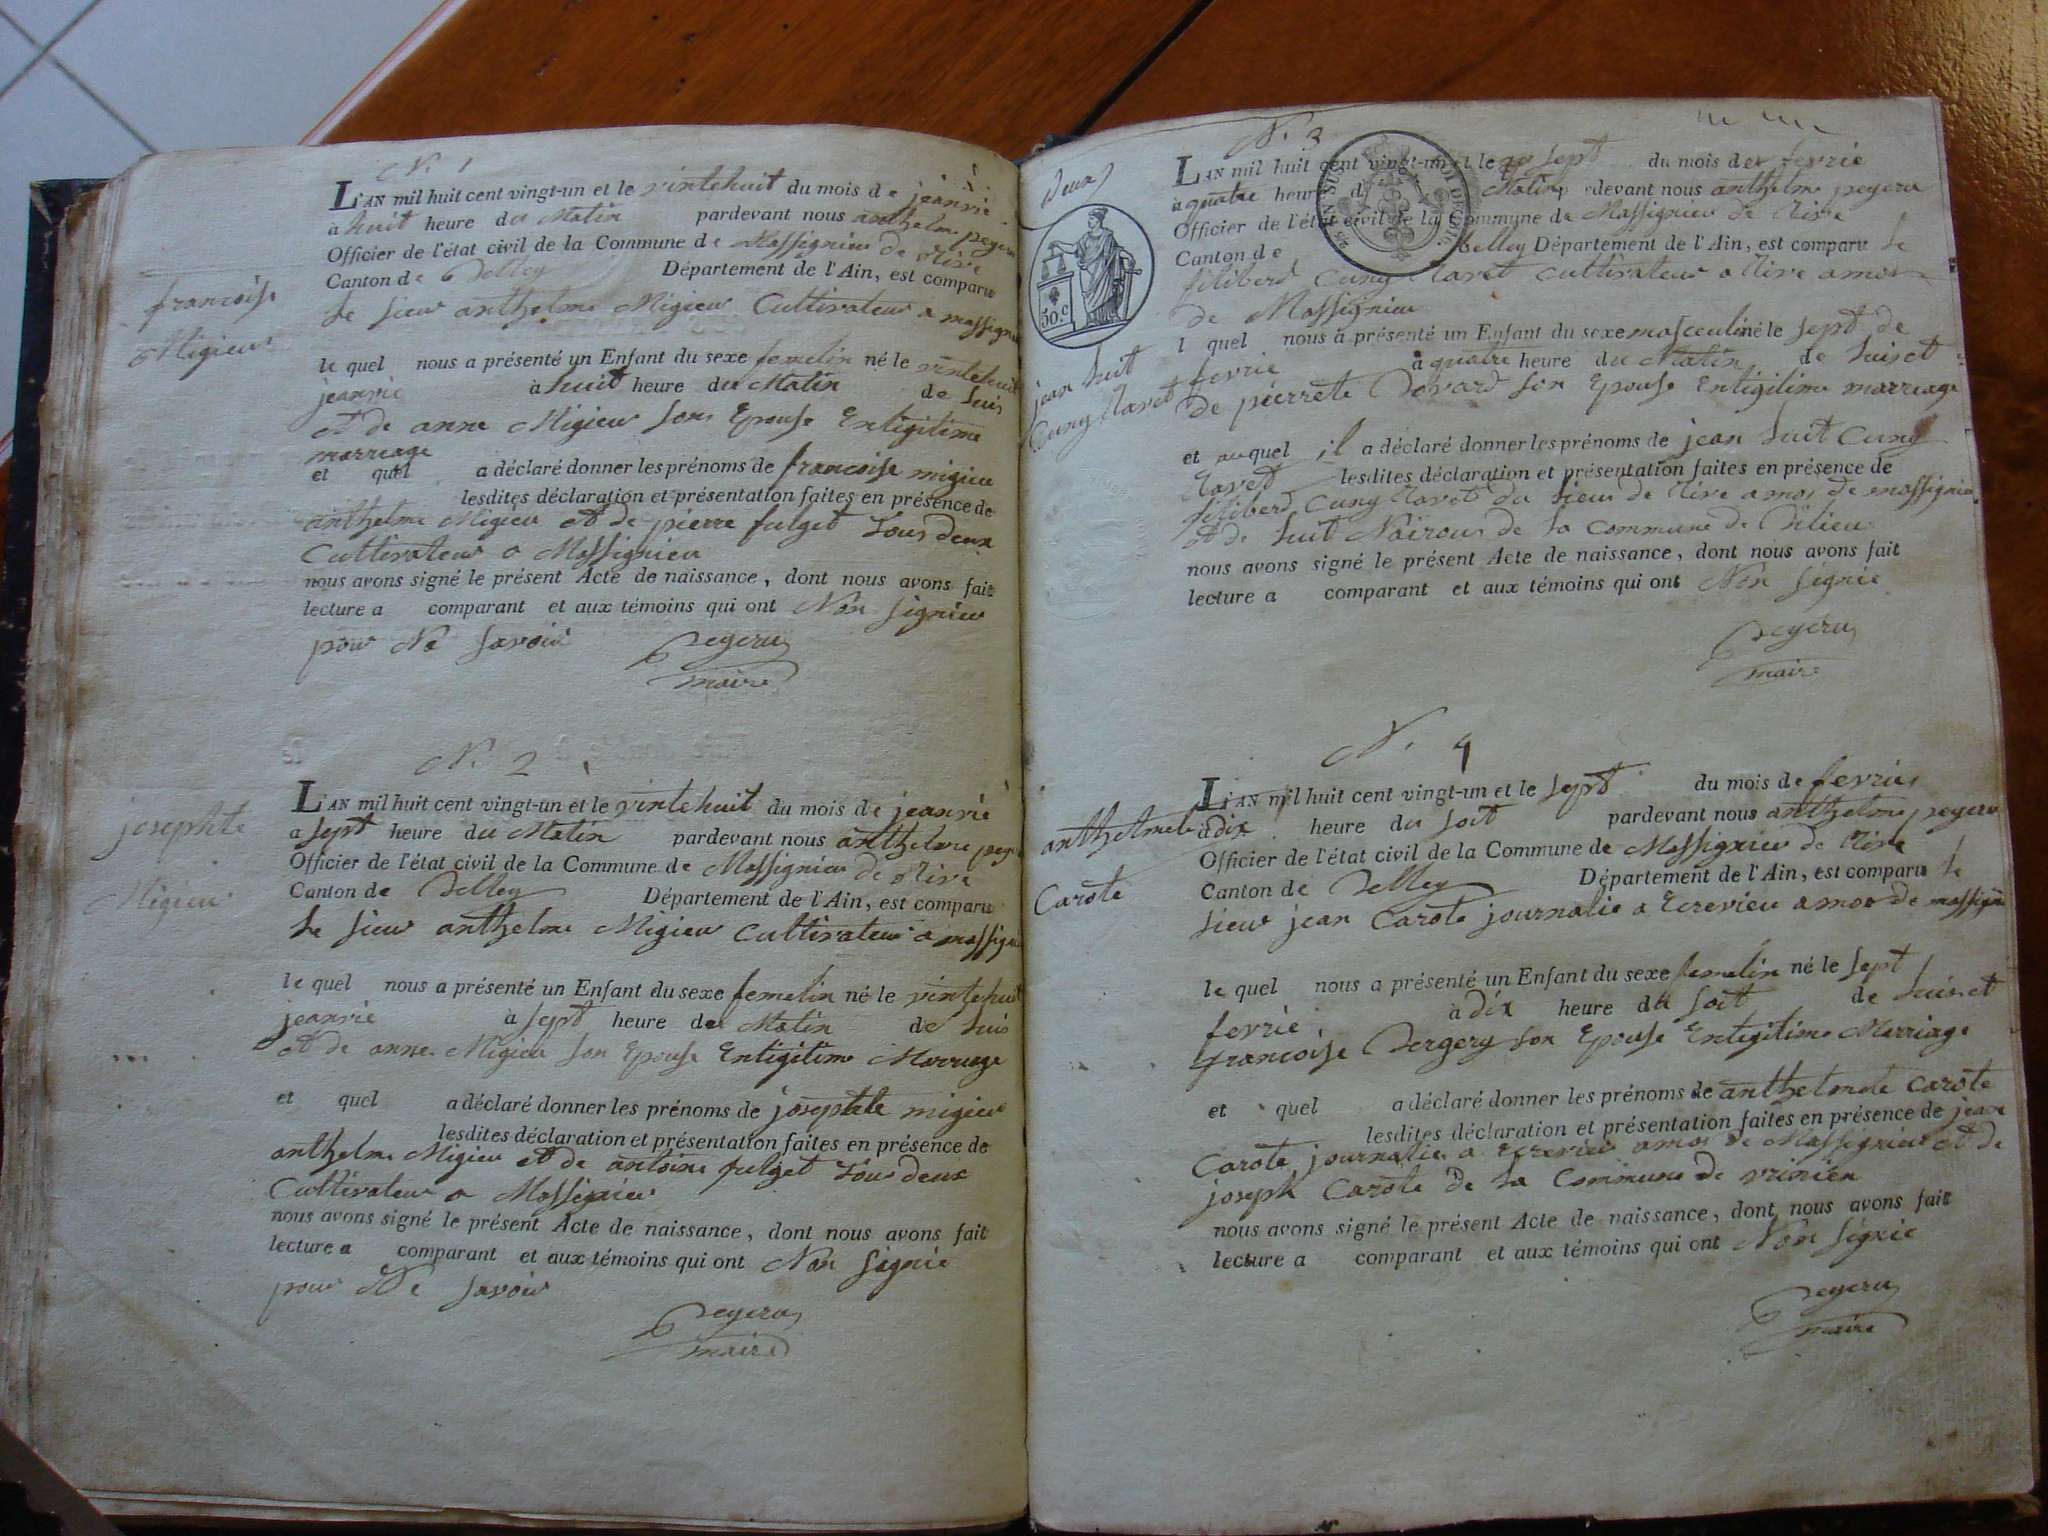 N. 1
L'AN mil huit cent vingt-un et le vintehuit du mois de jeanvié
à huit heure du Matin pardevant nous anthelme peyeru
Officier de l'état civil de la Commune de Massignieu de Rive
Canton de Belley Département de l'Ain, est comparu
Le sieur anthelme Migieu Cultivateur a massignieu
francoise
Migieu
le quel nous a présenté un Enfant du sexe femelin né le vintehuit
jeanvié à huit heure du Matin de Luis
et de anne Migieu son Epouse Entigitime
marriage
et quel a déclaré donner les prénoms de francoise migieu
lesdites déclaration et présentation faites en présence de
anthelme Migieu et de pierre fulget tous deux
Cultivateur a Massignieu
nous avons signé le présent Acte de naissance, dont nous avons fait
lecture a comparant et aux témoins qui ont Non signieu
pour Ne savoir Peyeru
maire
N. 2
L'AN mil huit cent vingt-un et le vintehuit du mois de jeanvié
a sept heure du Matin pardevant nous anthelme peyeru
Officier de l'état civil de la Commune de Massignieu de Rive
Canton de Belley Département de l'Ain, est comparu
Le sieur anthelme Migieu Cultivateur a massignieu
josephte
Migieu
le quel nous a présenté un Enfant du sexe femelin né le vintehuit
jeanvié à sept heure de Matin de Luis
et de anne Migieu son Epouse Entigitime Marriage
et quel a déclaré donner les prénoms de josephte migieu
lesdites déclaration et présentation faites en présence de
anthelme Migieu et de antoine fulget tous deux
Cultivateur a Massignieu
nous avons signé le présent Acte de naissance, dont nous avons fait
lecture a comparant et aux témoins qui ont Non signié
pour Ne savoir
Peyeru
maire
Deux
50.c
N. 3
L'AN mil huit cent vingt-un et le sept du mois de fevrié
à quatre heure d Matin devant nous anthelme peyeru
Officier de l'état civil de la Commune de Massignieu de Rive
Canton de Belley Département de l'Ain, est comparu Le
filiberd Cuny Claret Cultivateur a Rive amos
de Massignieu
jean Luit
Cuny Claret
l quel nous a présenté un Enfant du sexe masceulin né le sept de
fevrié à quatre heure du Matin de Luis et
de pierrete Dovard son Epouse Entigitime marriage
et auquel il a déclaré donner les prénoms de jean Luit Cuny
Claret lesdites déclaration et présentation faites en présence de
filiberd Cuny Claret du Lieu de Rive amos de massignieu
et de Luit Noirou de la commune de
nous avons signé le présent Acte de naissance, dont nous avons fait
lecture a comparant et aux témoins qui ont Non signié
Peyeru
maire
N. 4
L'AN mil huit cent vingt-un et le sept du mois de fevrier
à dix heure du soit pardevant nous anthelme peyeru
Officier de l'état civil de la Commune de Massignieu de Rive
Canton de Belley Département de l'Ain, est comparu Le
sieur jean Carote journalié a Ecrevieu amos de massignieu
anthelmete
Carote
le quel nous a présenté un Enfant du sexe femelin né le sept
fevrié à dix heure du soit de Luis et
francoise Bergery son Epouse Entigitime Marriage
et quel a déclaré donner les prénoms de anthelmete Carote
lesdites déclaration et présentation faites en présence de jean
Carote journalié a Ecrevieu amos de Massignieu et de
joseph Carote de la Commune de
nous avons signé le présent Acte de naissance, dont nous avons fait
lecture a comparant et aux témoins qui ont Non signié
Peyeru
maire